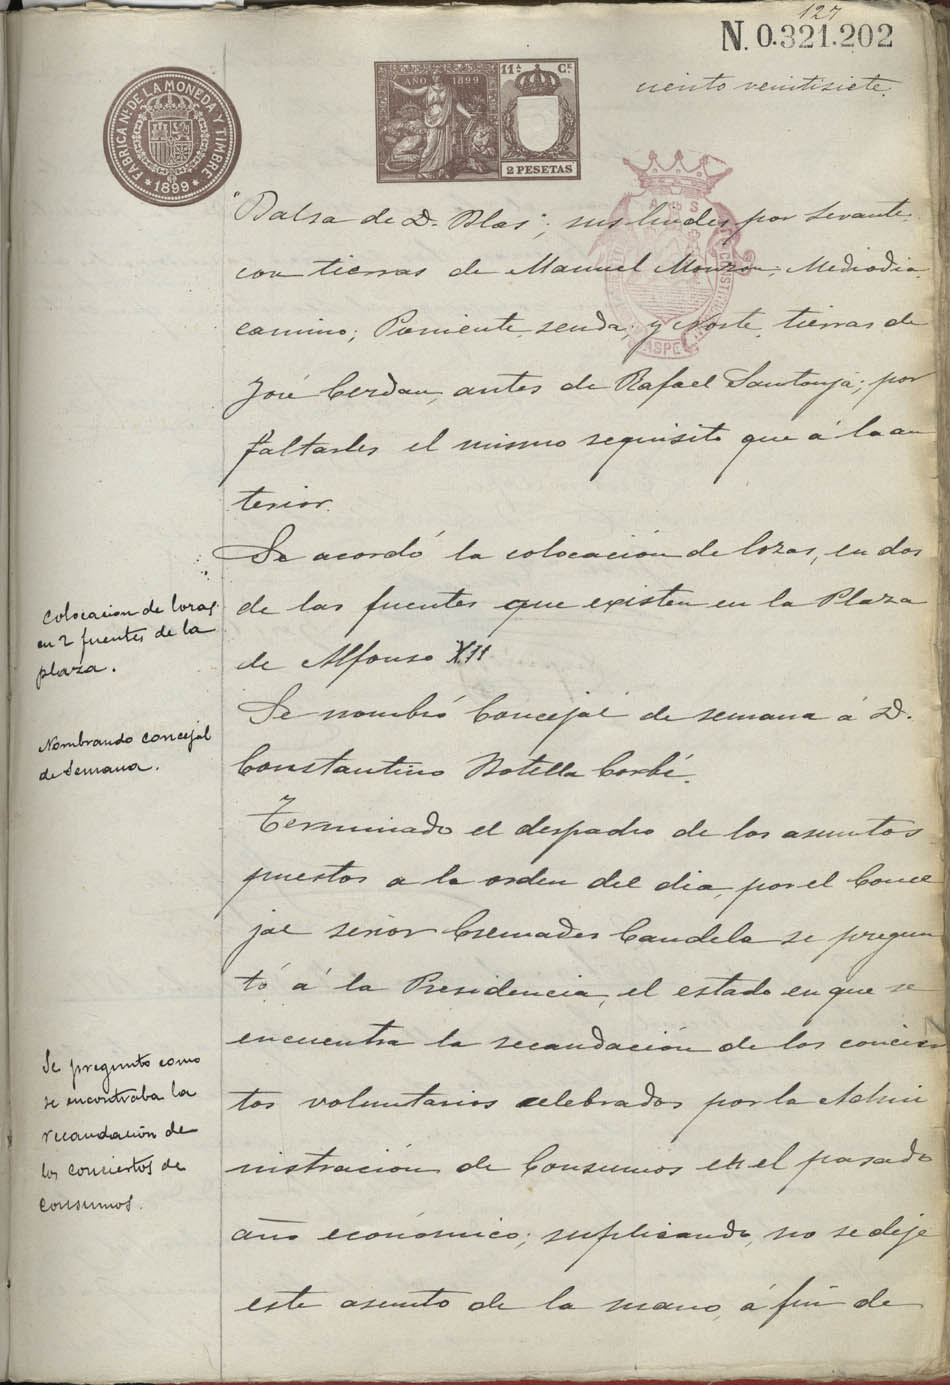 127
N. 0.321.202
ciento veintisiete.
FABRICA Nl. DE LA MONEDA Y TIMBRE
* 1899 *
AÑO 1899
11ª Cª
2 PESETAS
ASPE
"Balsa de D. Blas"; sus lindes por Levante
con tierras de Manuel Monzon, Mediodia
camino; Poniente, senda; y Norte, tierras de
José Cerdan, antes de Rafael Santonja; por
faltarles el mismo requisito que á la an
terior.
Se acordó la colocación de lozas, en dos
de las fuentes que existen en la Plaza
de Alfonso XII
Se nombró Concejal de semana á D.
Constantino Botella Corbí.
Terminado el despacho de los asuntos
puestos a la orden del dia, por el Conce
jal señor Cremades Candela se pregun
tó á la Presidencia, el estado en que se
encuentra la recaudación de los concier
tos voluntarios celebrados por la Admi
nistración de Consumos en el pasado
año económico; suplicando, no se deje
este asunto de la mano, á fin de
Colocacion de lozas
en 2 fuentes de la
plaza.
Nombrando concejal
de Semana.
Se pregunto como
se encontraba la
recaudación de
los conciertos de
consumos.